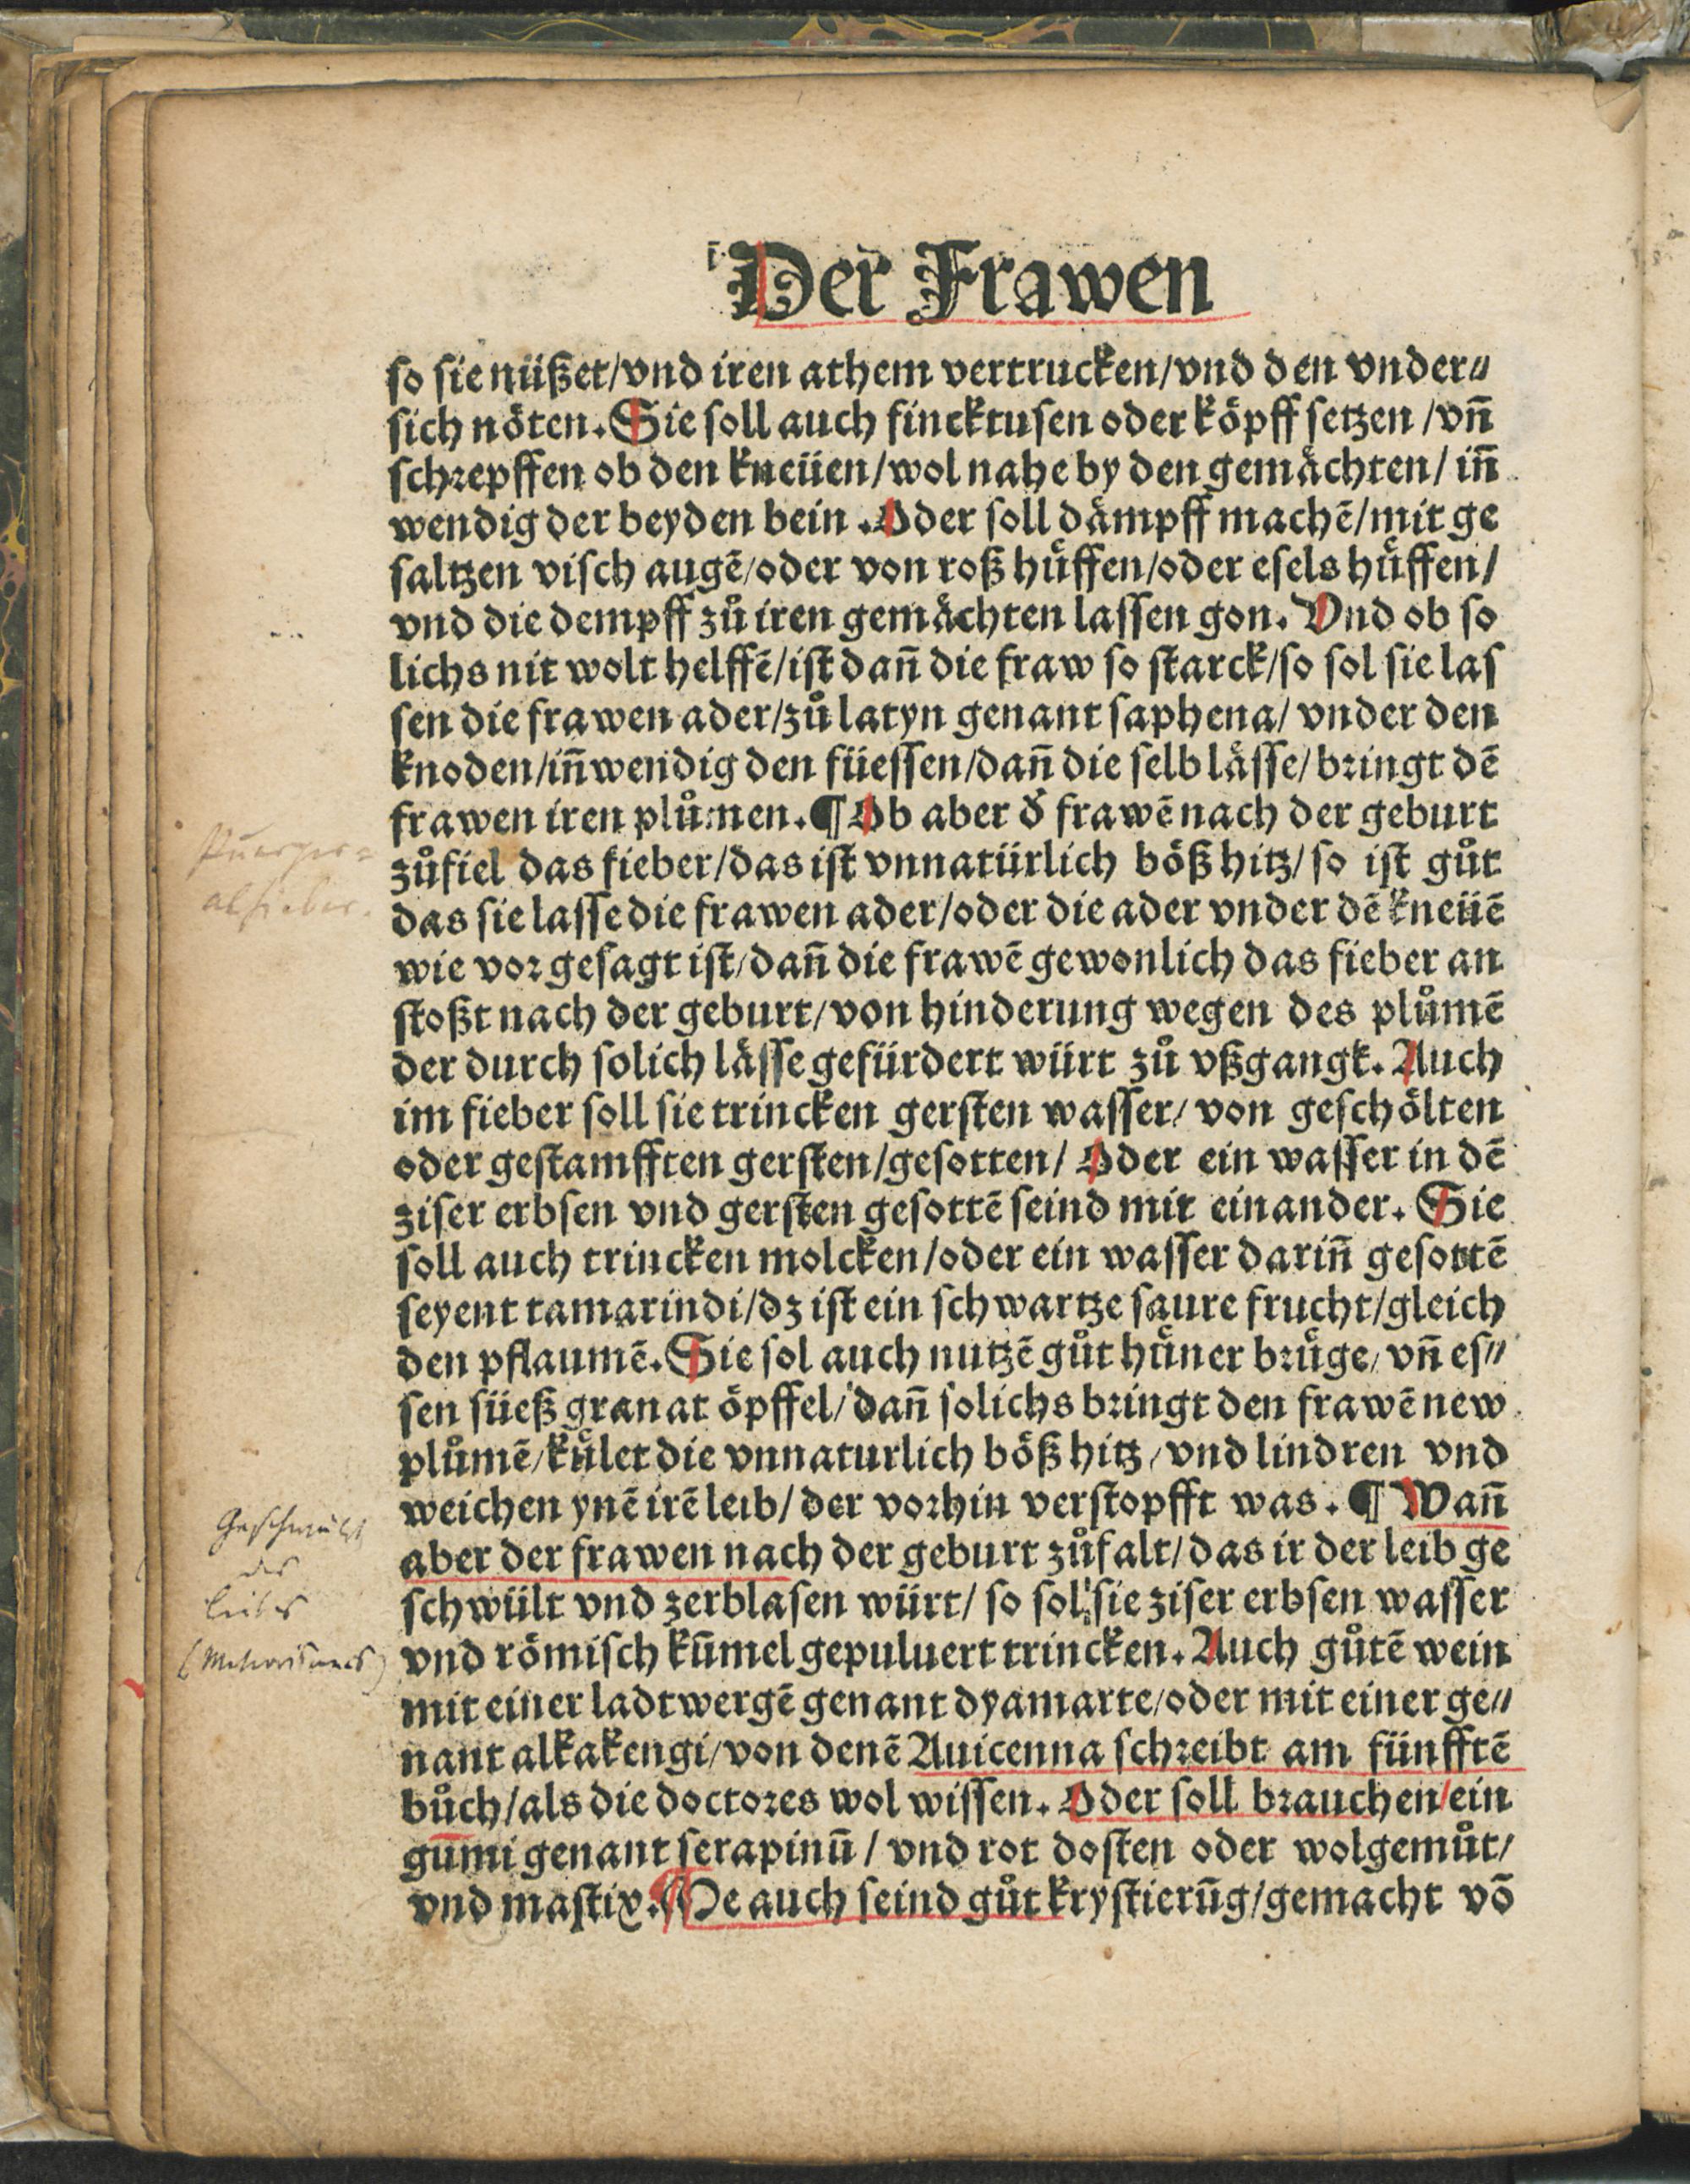 Der Frawen
so sie nüßet/vnd iren athem vertrucken/vnd den vnder⸗
sich nöten. Sie soll auch fincktusen oder köpff setzen /vñ
schrepffen ob den kneüen/wol nahe by den gemächten/ iñ
wendig der beyden bein. Oder soll dämpff machē/mit ge
saltzen visch augē/oder von roß hüffen/oder esels hüffen/
vnd die dempff zů iren gemächten lassen gon. Vnd ob so
lichs nit wolt helffē/ist dañ die fraw so starck/so sol sie las
sen die frawen ader/zů latyn genant saphena/ vnder den
knoden/iñwendig den füessen/dañ die selb lässe/bringt dē
frawen iren plůmen. ¶ Ob aber d̕ frawē nach der geburt
zůfiel das fieber/das ist vnnatürlich böß hitz/ so ist gůt
das sie lasse die frawen ader/oder die ader vnder dē kneüē
wie vor gesagt ist/dañ die frawē gewonlich das fieber an
stoßt nach der geburt/von hinderung wegen des plůmē
der durch solich lässe gefürdert würt zů vßgangk. Auch
im fieber soll sie trincken gersten wasser/ von geschölten
oder gestampfften gersten/gesotten/ Oder ein wasser in dē
ziser erbsen vnd gersten gesottē seind mit einander. Sie
soll auch trincken molcken/oder ein wasser dariñ gesottē
seyent tamarindi/dz ist ein schwartze saure frucht/gleich
den pflaumē. Sie sol auch nutzē gůt hüner brüge/ vñ es⸗
sen süeß granat öpffel/dañ solichs bringt den frawē new
plůmē/kület die vnnaturlich böß hitz/vnd lindren vnd
weichen ynē irē leib/ der vorhin verstopfft was. ¶ Wañ
aber der frawen nach der geburt zůfalt/das ir der leib ge
schwült vnd zerblasen würt/ so sol sie ziser erbsen wasser
vnd römisch kümel gepuluert trincken. Auch gůtē wein
mit einer ladtwergē genant dyamarte/oder mit einer ge⸗
nant alkakengi/von denē Auicenna schreibt am fünfftē
bůch/als die doctores wol wissen. Oder soll brauchen/ein
gūmi genant serapinū / vnd rot dosten oder wolgemůt/
vnd mastix. ¶ Je auch seind gůt krystierūg/gemacht vō
Puerper⸗
alfieber.
Geschwulst
des
leibes
(Meteorismus)